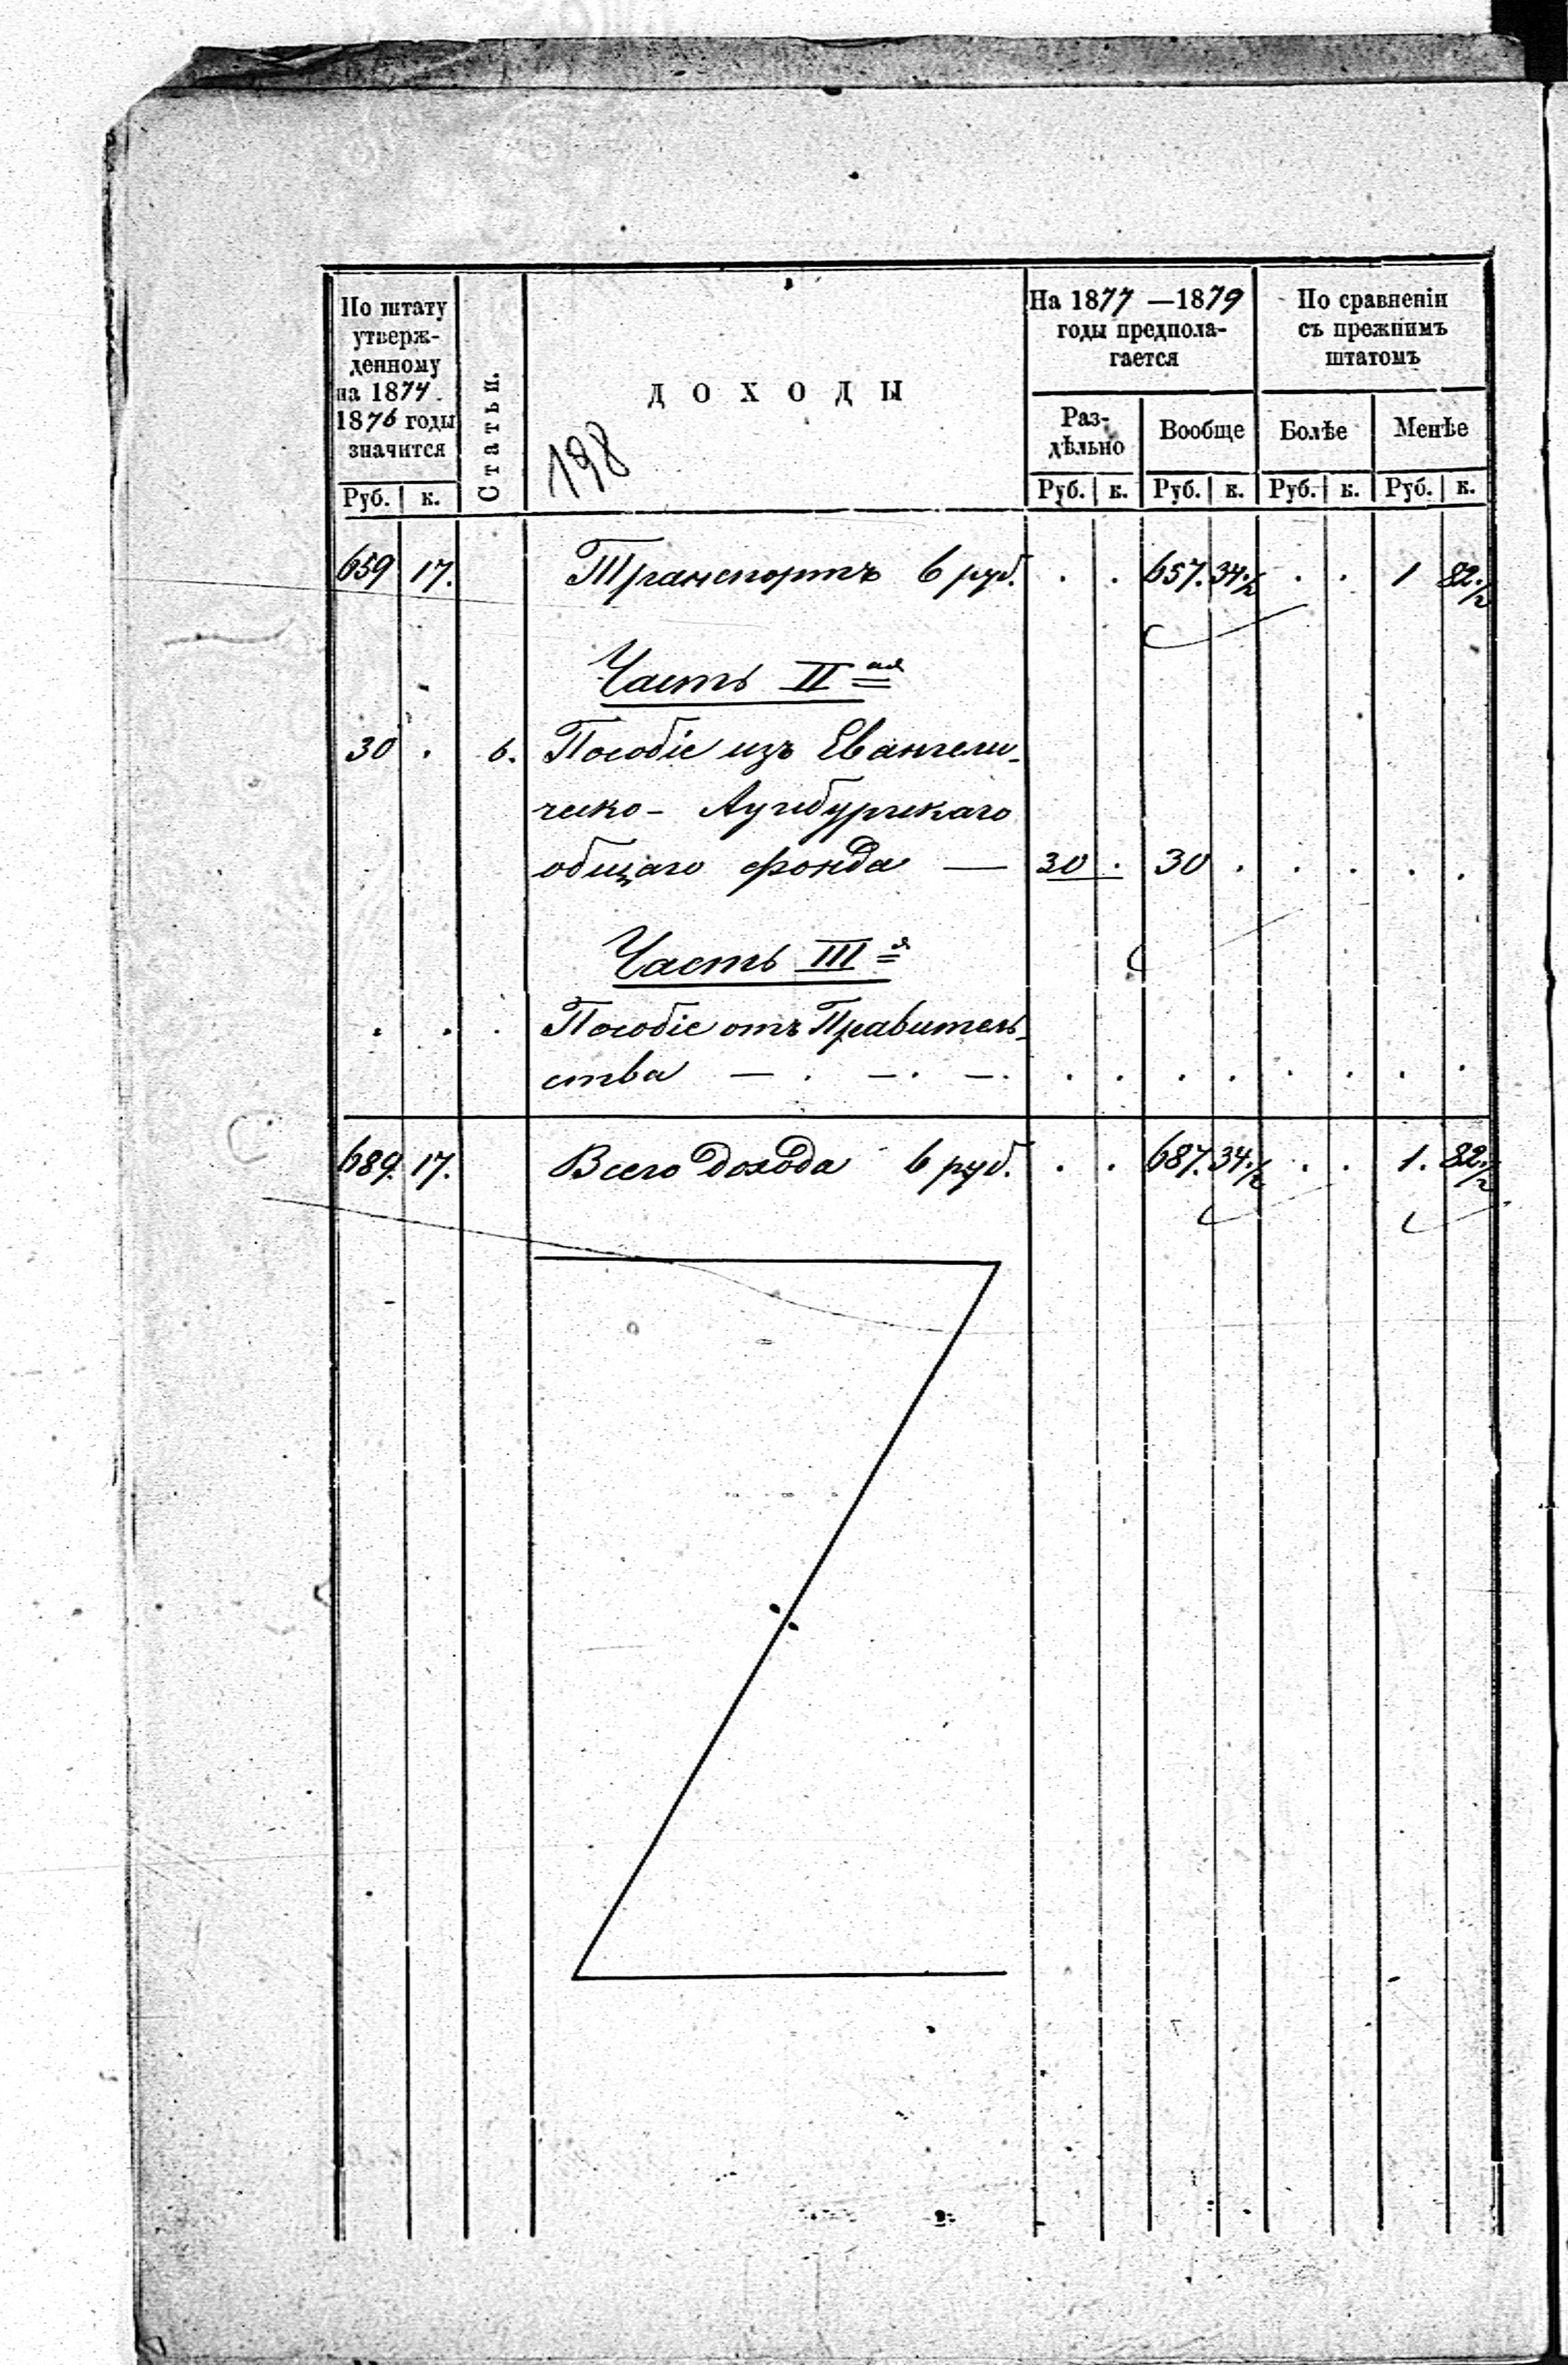 По штату
утверж-
денному
на 1874 -
1876 годы
значится
Руб. к.
Статьи.
ДОХОДЫ
198
На 1877 —1879
годы предпола-
гается
Раз-
дѣльно
Руб. к.
Вообще
Руб. к.
По сравненіи
съ прежнимъ
штатомъ
Болѣе
Руб. к.
Менѣе
Руб. к.
659 17. Транспортъ 6 руб. . . 657. 34.½ . . 1 82.½
Часть II ая
30 . 6. Пособіе изъ Евангели-
ческо- Аугсбургскаго
общаго фонда — 30 . 30 . . . . .
Часть III я
. . . Пособіе отъ Правитель-
ства — . — . — . . . . . . . . .
689. 17. Всего дохода 6 руб. . . 687. 34.½ . . 1. 82.½